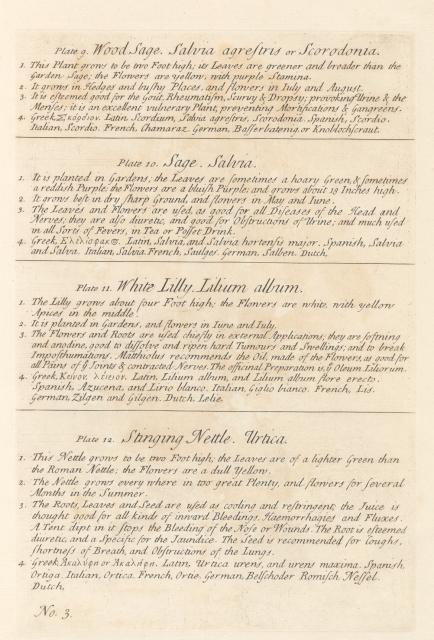 Plate 9. Wood Sage. Salvia agrestris or Scorodonia.
1. This Plant grows to be two Foot high; its Leaves are greener and broader than the
Garden Sage; the Flowers are yellow, with purple Stamina.
2. It grows in Hedges and bushy Places, and flowers in Iuly and August.
3. It is esteemed good for the Gout, Rheumatism, Scurvy & Dropsy; provoking Urine & the
Menses; it is an excellent vulnerary Plant, preventing Mortifications & Gangreens.
4. Greek, Σκόρδιον. Latin, Scordium, Salvia agrestris, Scorodonia. Spanish, Scordio.
Italian, Scordio. French, Chamaraz. German, Wasserbatenig or Knoblochscraut.
Plate 10. Sage. Salvia.
1. It is planted in Gardens; the Leaves are sometimes a hoary Green, & sometimes
a reddish Purple; the Flowers are a bluish Purple; and grows about 18 Inches high.
2. It grows best in dry sharp Ground, and flowers in May and Iune.
3. The Leaves and Flowers are used, as good for all Diseases of the Head and
Nerves; they are also diuretic, and good for Obstructions of Urine; and much used
in all Sorts of Fevers, in Tea or Posset Drink.
4. Greek, Ελελισφακος. Latin, Salvia, and Salvia hortensis major. Spanish, Salvia
and Salva. Italian, Salvia. French, Saulges. German, Salben. Dutch,
Plate 11. White Lilly. Lilium album.
1. The Lilly grows about four Foot high; the Flowers are white, with yellow
Apices in the middle.
2. It is planted in Gardens, and flowers in Iune and Iuly.
3. The Flowers and Roots are used chiefly in external Applications; they are softning
and anodine, good to dissolve and ripen hard Tumours and Swellings; and to break
Imposthumations. Matthiolus recommends the Oil, made of the Flowers, as good for
all Pains of ye Joints & contracted Nerves. The officinal Preparation is, ye Oleum Liliorum.
4. Greek, Κείνον, λείριον. Latin, Lilium album, and Lilium album flore erecto.
Spanish, Azucena, and Lirio blanco. Italian, Giglio bianco. French, Lis.
German, Zilgen and Gilgen. Dutch, Lelie.
Plate 12. Stinging Nettle. Urtica.
1. This Nettle grows to be two Foot high; the Leaves are of a lighter Green than
the Roman Nettle; the Flowers are a dull Yellow.
2. The Nettle grows every where in too great Plenty, and flowers for several
Months in the Summer.
3. The Roots, Leaves and Seed are used as cooling and restringent; the Juice is
thought good for all kinds of inward Bleedings, Haemorrhagies and Fluxes.
A Tent dipt in it stops the Bleeding of the Nose or Wounds. The Root is esteemed
diuretic, and a Specific for the Jaundice. The Seed is recommended for Coughs,
shortness of Breath, and Obstructions of the Lungs.
4. Greek, Ακαλύφη or Ακαλήφη. Latin, Urtica urens, and urens maxima. Spanish,
Ortiga. Italian, Ortica. French, Ortie. German, Welschoder Romisch. Nessel.
Dutch,
No. 3.